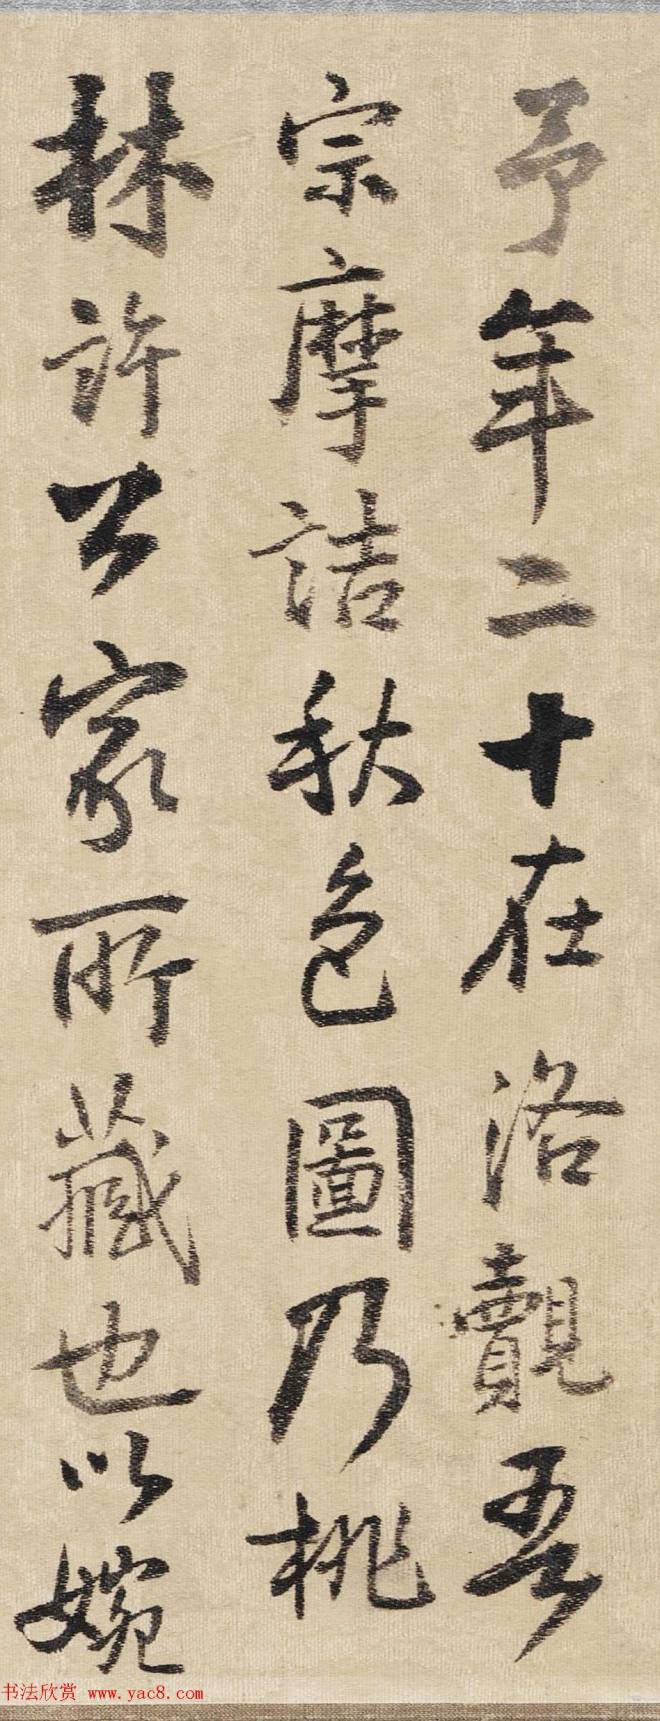 予年二十在洛覿吾
宗摩詰秋色圖乃桃
林許公家所藏也以婉
书法欣赏 www.yac8.com